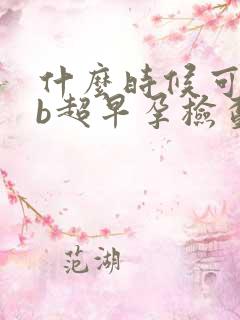 什麼時候可
b超早孕檢查
范湖